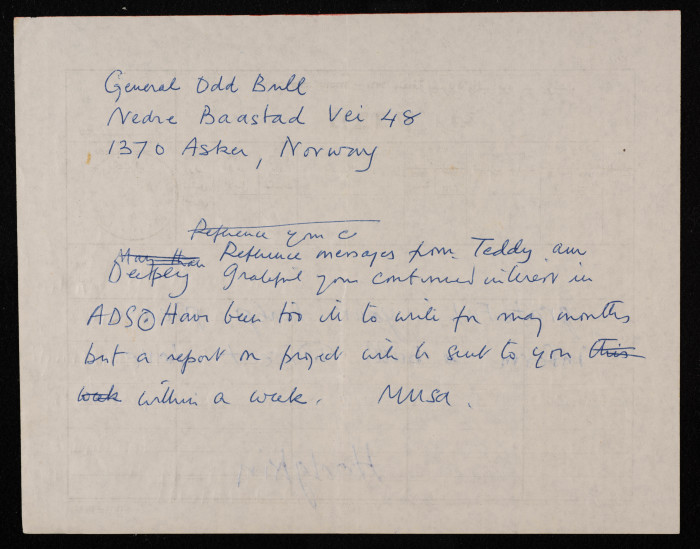 General Odd Bull
Nedre Baastad Vei 48
1370 Asker, Norway
Reference your c
Many than Reference messages from Teddy am
Deeply Grateful your continued interest in
ADS⊙ Have been too ill to write for many months
but a report on project will be sent to you this
week within a week. Musa.
Hodgkin